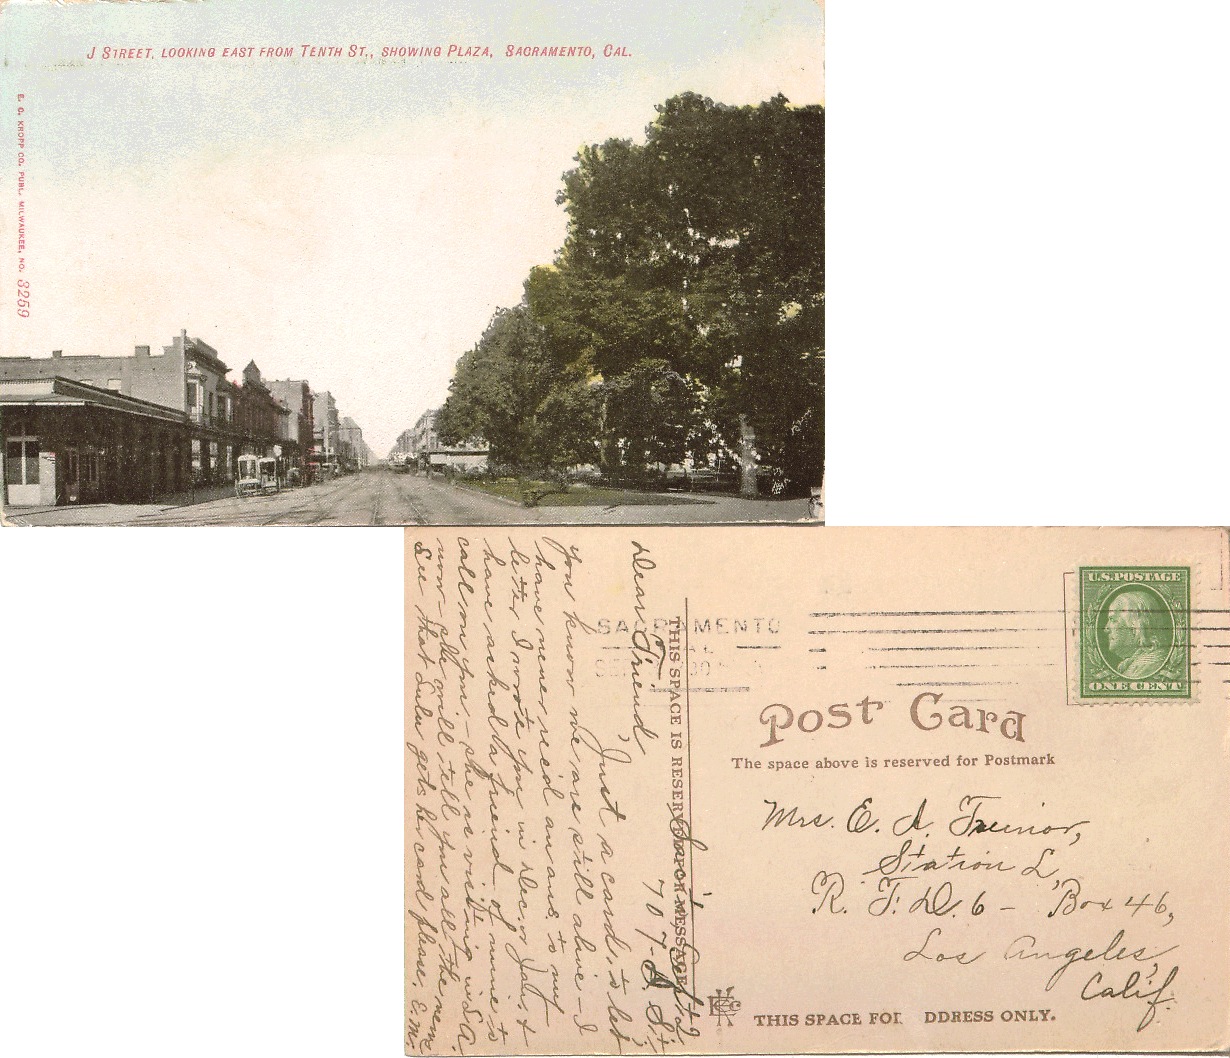 J STREET, LOOKING EAST FROM TENTH ST., SHOWING PLAZA, SACRAMENTO, CAL.
E. C. KROPP CO. PUBL. MILWAUKEE, NO. 3259
U.S. POSTAGE
ONE CENT
SACRAMENTO
Post Card
The space above is reserved for Postmark
THIS SPACE IS RESERVED FOR MESSAGE
Mrs. E. A.
Station L,
R. F. D. 6 - Box 46,
Los Angeles,
Calif.
THIS SPACE FOR ADDRESS ONLY.
707
Dear Friend,
Just a card, to let
you know we are still alive - I
have never rec'd an ans. to my
letter I wrote you in Dec. or Jan. &
have asked a friend of mine to
call on you - she is visiting in L A
now - she will tell you all the news
See that Lulu gets her card please. E. M.